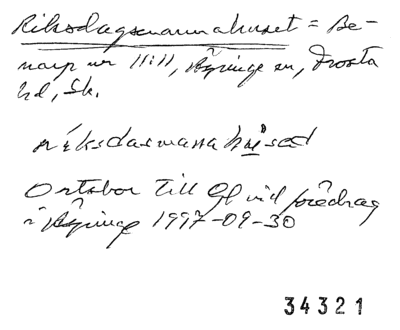 Riksdagsmannahuset = Be-
narp nr 11:11, Äspinge sn, Frosta
hd, Sk.
riksdasmanahused
Ortsbor till GJ vid föredrag
i Äspinge 1997-09-30
34321